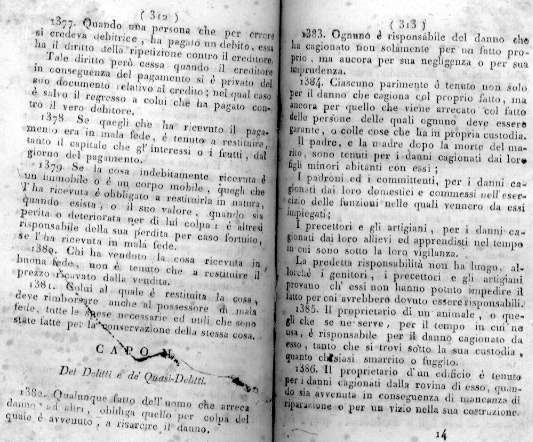 ( 312 )
1377. Quando una persona che per errore
si credeva debitrice, ha pagato un debito, essa
ha il diritto della ripetizione contro il creditore.
Tale diritto però cessa quando il creditore
in conseguenza del pagamento si è privato del
suo documento relativo al credito; nel qual caso
è salvo il regresso a colui che ha pagato con-
tro il vero debitore.
1378 Se quegli che ha ricevuto il paga-
mento era in mala fede, è tenuto a restituire,
tanto il capitale che gl' interessi o i frutti, dal
giorno del pagamento.
1379. Se la cosa indebitamente ricevuta è
un immobile o è un corpo mobile, quegli che
l'ha ricevuta è obbligato a restituirla in natura,
quando esista, o il suo valore, quando sia
perita o deteriorata per di lui colpa: è altresì
responsabile della sua perdita per caso fortuito,
se l'ha ricevuta in mala fede.
1380. Chi ha venduto la cosa ricevuta in
buona fede, non è tenuto che a restituire il
prezzo ricavato dalla vendita.
1381. Colui al quale è restituita la cosa,
deve rimborsare anche al possessore di mala
fede, tutte le spese necessarie ed utili che sono
state fatte per la conservazione della stessa cosa.
CAPO
Dei Delitti e de' Quasi-Delitti.
1382. Qualunque fatto dell'uomo che arreca
danno ad altri, obbliga quello per colpa del
quale è avvenuto, a risarcire il danno.
( 313 )
1383. Ognuno è responsabile del danno che
ha cagionato non solamente per un fatto pro-
prio, ma ancora per sua negligenza o per sua
imprudenza.
1384. Ciascuno parimente è tenuto non solo
per il danno che cagiona col proprio fatto, ma
ancora per quello che viene arrecato col fatto
delle persone delle quali ognuno deve essere
garante, o colle cose che ha in propria custodia.
Il padre, e la madre dopo la morte del ma-
rito, sono tenuti per i danni cagionati dai loro
figli minori abitanti con essi;
I padroni ed i committenti, per i danni ca-
gionati dai loro domestici e commessi nell'eser-
cizio delle funzioni nelle quali vennero da essi
impiegati;
I precettori e gli artigiani, per i danni ca-
gionati dai loro allievi ed apprendisti nel tempo
in cui sono sotto la loro vigilanza.
La predetta risponsabilità non ha luogo, al-
lorchè i genitori, i precettori e gli artigiani
provano ch' essi non hanno potuto impedire il
fatto per cui avrebbero dovuto essere risponsabili.
1385. Il proprietario di un animale, o que-
gli che se ne serve, per il tempo in cui ne
usa, è risponsabile per il danno cagionato da
esso, tanto che si trovi sotto la sua custodia,
quanto che siasi smarrito o fuggito.
1386. Il proprietario d'un edificio è tenuto
per i danni cagionati dalla rovina di esso, quan-
do sia avvenuta in conseguenza di mancanza di
riparazione o per un vizio nella sua costruzione.
14